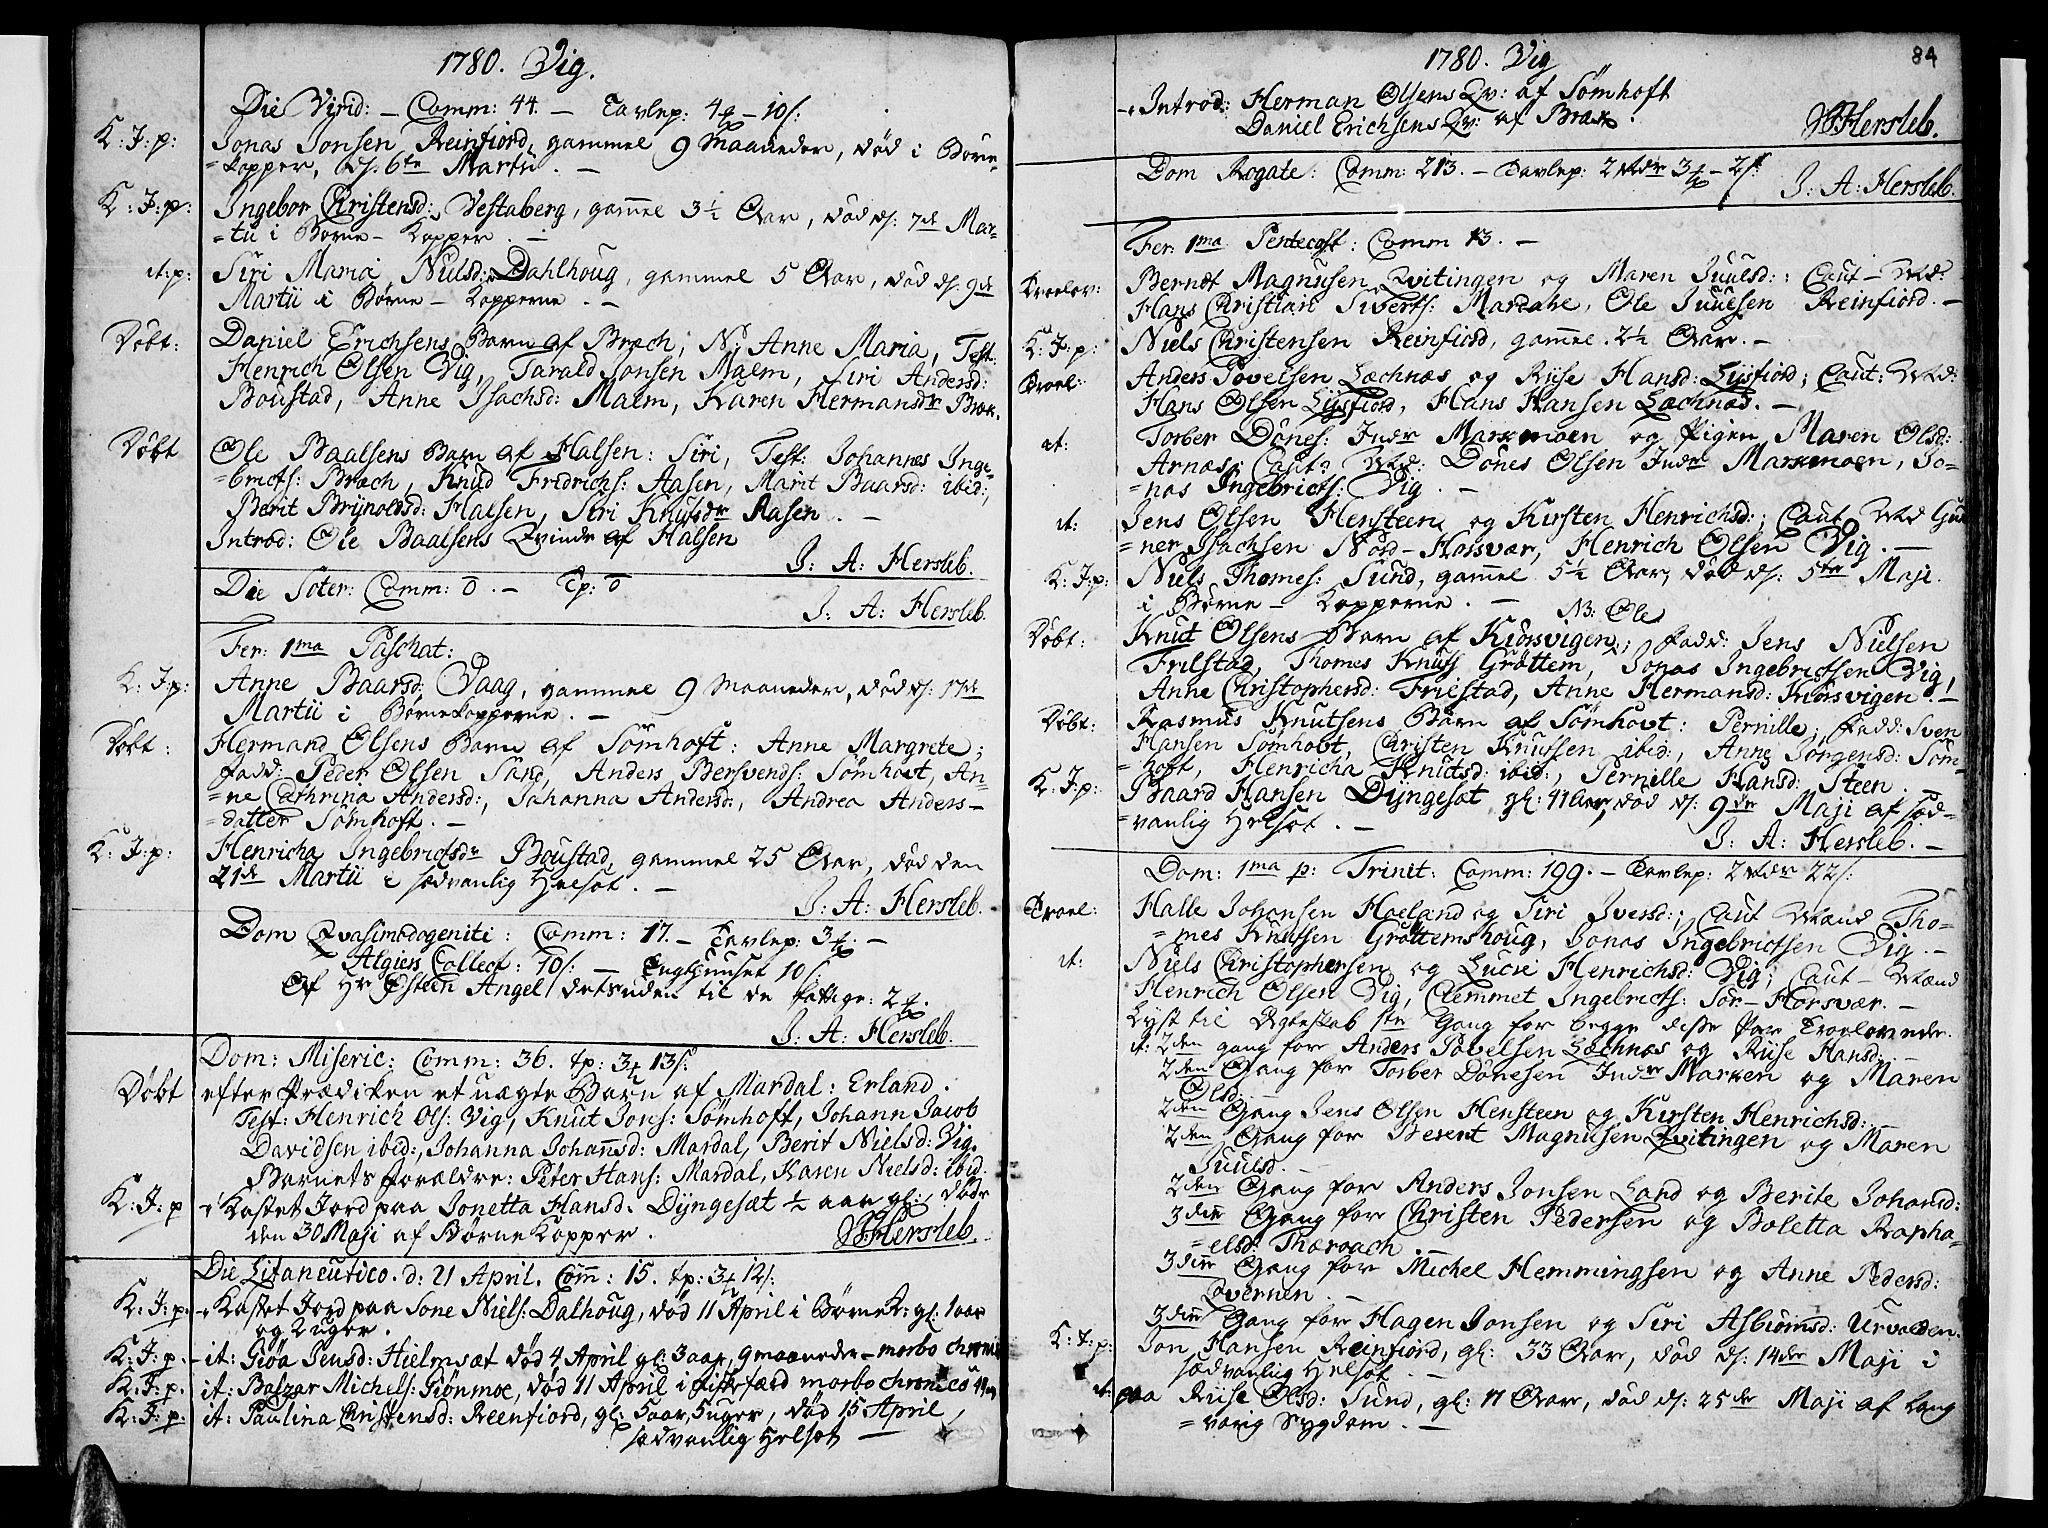 1780. Vig.
Die Virid: - Comm: 44. - Tavlep: 4 - 10/:
K: J: p: Jonas Jonsen Reinfiord, gammel 9 Maaneder, død i Børne
=kopper, d/: 6te Martii. -
K: J: p: Ingebor Christensd: Vestaberg, gammel 3½ Aar, død d/: 7de Mar-
=tii i Børne-Kopper. -
it: p: Siri Maria Nielsd: Dahlhoug, gammel 5 Aar, død d/: 9de
Martii i Børne-Kopperne. -
Døbt: Daniel Erichsens Barn af Bræch; N: Anne Maria, Test:
Henrich Olsen Vig, Tarald Jonsen Malm, Siri Andersd:
Boustad, Anne Isachsd: Malm, Karen Hermansdr Bræk.
Døbt Ole Baalsens Barn af Halsen: Siri, Test: Johannes Inge-
=bricts: Bræch, Knud Fridrichs: Aasen, Marit Baarsd: ibid:,
Berit Brynoldsd: Halsen, Siri Knutsdr Aasen. -
Introd: Ole Baalsens Qvinde af Halsen
J: A: Hersleb.
Die Soter: Comm: 0. - Tp: 0
J: A: Hersleb.
Fer: 1ma Paschat:
K: J: p: Anne Baarsd: Vaag, gammel 9 Maaneder, død d/: 17de
Martii i Børnekopperne. -
Døbt: Hermand Olsens Barn af Sømhoft: Anne Margrete;
fadd: Peder Olsen Sand, Anders Bersvends: Sømhovt, An-
=ne Cathrina Andersd:, Johanna Andersd:, Andrea Anders-
=datter Sømhoft. -
K: J: p: Henricha Ingebrictsdr Boustad, gammel 25 Aar, død den
21de Martii i sædvanlig Helsot. -
J: A: Hersleb.
Dom Qvasimodogeniti: Comm: 17. - Tavlep: 3. -
Algiers Collect: 10/: - Tugthuuset 10/:
Af Hr Østen Angel desuden til de fattige: 2.
J: A: Hersleb.
Dom: Miseric: Comm: 36. tp: 3 13/:
Døbt efter Prædiken et uægte Barn af Mardal: Erland.
Test: Henrich Ols: Vig, Knut Jons: Sømhoft, Johann Jacob
Davidsen ibid:, Johanna Johansd: Mardal, Berit Nielsd: Vig.
Barnets forældre: Peter Hans: Mardal, Karen Nielsd: ibid.
K: J: p - Kastet Jord paa Jonetta Hansd: Dyngesæt ½ aar gl:, døde
den 30 Maji af BørneKopper.
Hersleb.
Die Litaneutico. d: 21 April. Com: 15. tp: 3 12/:
K: J: p. - Kastet Jord paa Sone Niels: Dalhoug, død 11 April i BørneK: gl: 1 aar
og 2 uger.
K: J: p. - it: Giøa Jensd: Hielmsæt død 4 April gl: 3 aar, 9 maaneder - morbo chronic
K: J: p. it: Baszar Michels: Giønmoe, død 11 April i fiskefærd morbo chronico
K: J: p. it: Paulina Christensd: Reenfiord, gl: 5 aar, 5 uger, død 15 April
sædvanlig Helsot
1780. Vig
84
- Introd: Herman Olsens Qv: af Sømhoft
Daniel Erichsens Qv: af Bræk.
Hersleb.
Dom Rogate: Comm: 213. - Tavlep: 2 Rdr 3 - 2/:
J: A: Hersleb.
Fer: 1ma Pentecost: Comm 13. -
Troelov: Berndt Magnusen Qvitingen og Maren Juulsd:; Caut-Md:
Hans Christian Siverts: Mardahl, Ole Juulsen Reinfiord. -
K: J: p: Niels Christensen Reinfiord, gammel 2½ Aar. -
Troel: Anders Povelsen Lechnæs og Riise Hansd: Lysfiord; Caut: Md:
Hans Olsen Lysfiord, Hans Hansen Lechnæs. -
it: Torber Dønes: Indr Markmoen og Pigen Maren Olsd:
Arnæs; Caut: Md: Dønes Olsen Indr Markmoen, Jo-
=nas Ingebricts: Vig. -
it: Jens Olsen Hensteen og Kirsten Henrichsd:; Caut Md Gun
=ner Isachsen Nord-Horsvær, Henrich Olsen Vig. -
K: J: p: Niels Thomes: Sund, gammel 5½ Aar, død d/: 5te Maji
i Børne-Kopperne. -
NB: Ole
Døbt: Knut Olsens Barn af Kiørsvigen; fadd: Jens Nielsen
Frilstad, Thomes Knuss Grøttem, Jonas Ingebrictsen Vig,
Anne Christophersd: Frilstad, Anne Hermansd: Kiørsvigen. -
Døbt: Rasmus Knutsens Barn af Sømhovt: Pernille; fadd: Sven
Hansen Sømhovt, Christen Knussen ibid:, Anne Jørgensd: Søm-
=hoft, Henricha Knutsd: ibid:, Pernille Hansd: Steen. -
K: J: p: Baard Hansen Dyngesæt gl: 41 Aar, død d/: 9de Maji af sæd-
=vanlig Helsot. -
J: A: Hersleb. -
Dom: 1ma p: Trinit: Comm: 199. - Tavlep: 2 Rdr 22/:
Troel: Halle Johansen Hoeland og Siri Iversd:; Caut Mænd Tho-
=mes Knutsen Grøttemshoug, Jonas Ingebrictsen Vig. -
it: Niels Christophersen og Lucie Henrichsd: Vig; Caut-Mænd
Henrich Olsen Vig, Clemmet Ingebricts: Sør-Horsvær. -
Lyst til Ægteskab 1ste Gang for begge disse Par Troelovede.
it: 2den gang for Anders Povelsen Lechnæs og Riise Hansd: -
2den Gang for Torber Dønesen Indr Marken og Maren
Olsd: -
2den Gang Jens Olsen Hensteen og Kirsten Henrichsd: -
2den Gang for Berent Magnusen Qvitingen og Maren
Juulsd. -
2den Gang for Anders Jonsen Land og Berite Johansd:
3die Gang for Christen Pedersen og Boletta Rapha-
=elsd: Thæraach.
3die Gang for Michel Hemmingsen og Anne Pedersd:
Qvernen. -
3die Gang for Hagen Jonsen og Siri Asbiørnsd: Urvolden.
K: J: p: Jon Hansen Reinfiord, gl: 33 Aar, død d/: 14de Maji i
sædvanlig Helsot. -
it: paa Riise Olsd: Sund, gl: 17 Aar, død d/: 25de Maji af lang
=varig Sygdom. -